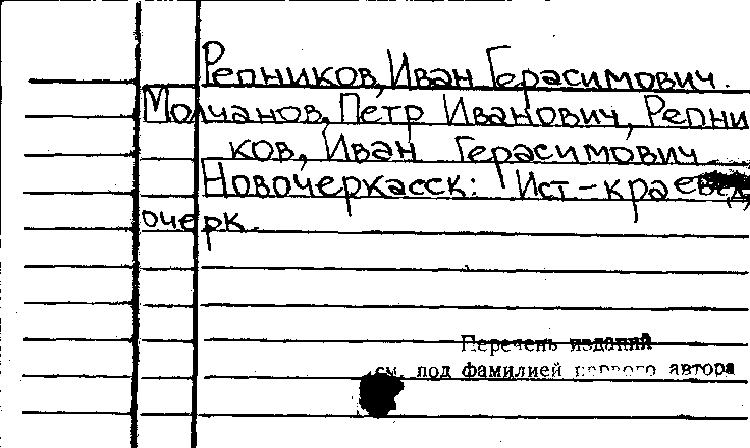 Репников, Иван Герасимович.
Молчанов, Петр Иванович, Репни
ков, Иван Герасимович
Новочеркасск: Ист.-краевед.
очерк.
Перечень изданий
см. под фамилией первого автора